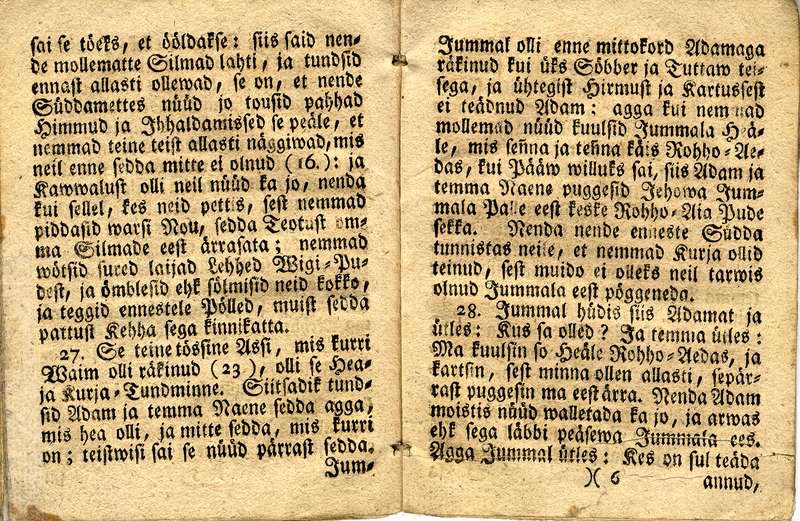 sai se töeks, et ööldakse: siis said nen-
de mollematte Silmad lahti, ja tundsid
ennast allasti ollewad, se on, et nende
Süddamettes nüüd jo tousid pahhad
Himmud ja Ihhaldamissed se peäle, et
nemmad teine teist allasti näggiwad, mis
neil enne sedda mitte ei olnud (16.): ja
Kawwalust olli neil nüüd ka jo, nenda
kui sellel, kes neid pettis, sest nemmad
piddasid warsi Nou, sedda Teotust om-
ma Silmade eest ärrasata; nemmad
wötsid sured laijad Lehhed Wigi-Pu-
dest, ja ömblesid ehk sölmisid neid kokko,
ja teggid ennestele Pölled, muist sedda
pattust Kehha sega kinnikatta.
27. Se teine tössine Assi, mis kurri
Waim olli räkinud (23), olli se Hea-
ja Kurja-Tundminne. Siitsadik tund-
sid Adam ja temma Naene sedda agga,
mis hea olli, ja mitte sedda, mis kurri
on; teistwisi sai se nüüd pärrast sedda.
Jum-
Jummal olli enne mittokord Adamaga
räkinud kui üks Söbber ja Tuttaw tei-
sega, ja ühtegist Hirmust ja Kartussest
ei teädnud Adam: agga kui nemmad
mollemad nüüd kuulsid Jummala Heä-
le, mis senna ja tenna käis Rohho-Ae-
das, kui Pääw willuks sai, siis Adam ja
temma Naene puggesid Jehowa Jum-
mala Palle eest keske Rohho-Aia Pude
sekka. Nenda nende enneste Südda
tunnistas neile, et nemmad Kurja ollid
teinud, sest muido ei olleks neil tarwis
olnud Jummala eest pöggeneda.
28. Jummal hüdis siis Adamat ja
ütles: Kus sa olled? Ja temma ütles:
Ma kuulsin so Heäle Rohho-Aedas, ja
kartsin, sest minna ollen allasti, sepär-
rast puggesin ma eest ärra. Nenda Adam
moistis nüüd walletada ka jo, ja arwas
ehk sega läbbi peäsewa Jummala ees.
Agga Jummal ütles: Kes on sul teäda
)( 6 annud,